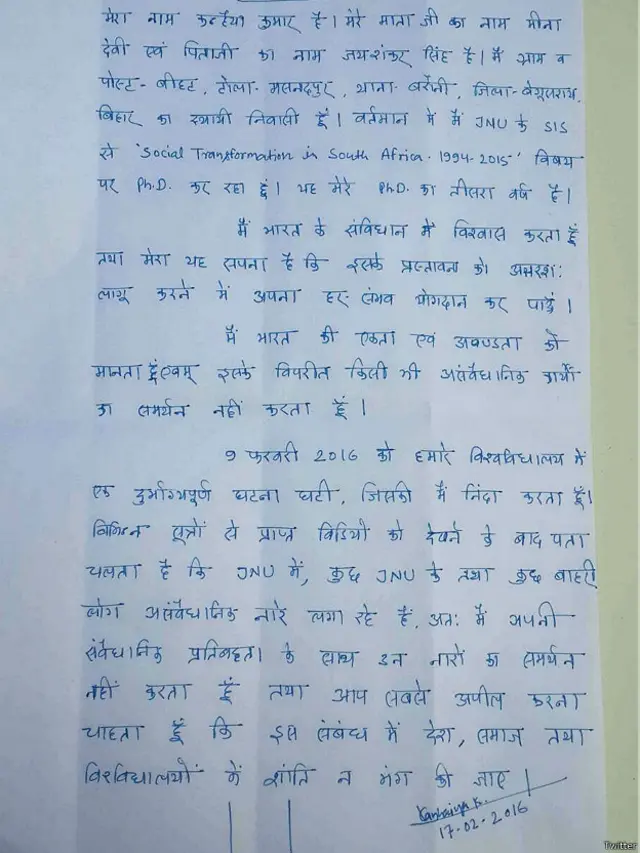 मेरा नाम कन्हैया कुमार है। मेरे माता जी का नाम मीना
देवी एवं पिताजी का नाम जयशंकर सिंह है। मैं ग्राम व
पोस्ट- बीहट, टोला- मसनदपुर, थाना- बरौनी, जिला- बेगूसराय,
बिहार का स्थायी निवासी हूँ। वर्तमान में मैं JNU के SIS
से 'Social Transformation in South Africa - 1994-2015' विषय
पर Ph.D. कर रहा हूं। यह मेरे Ph.D. का तीसरा वर्ष है।
मैं भारत के संविधान में विश्वास करता हूँ
तथा मेरा यह सपना है कि इसके प्रस्तावना को अक्षरश:
लागू करने में अपना हर- संभव योगदान कर पाऊं।
मैं भारत की एकता एवं अखण्डता को
मानता हूँ एवम् इसके विपरीत किसी भी असंवैधानिक कार्यो
का समर्थन नहीं करता हूँ।
9 फरवरी 2016 को हमारे विश्वविद्यालय में
एक दुर्भाग्यपूर्ण घटना घटी, जिसकी मैं निंदा करता हूँ।
विभिन्न सूत्रों से प्राप्त विडियो को देखने के बाद पता
चलता है कि JNU में, कुछ JNU के तथा कुछ बाहरी
लोग असंवैधानिक नारे लगा रहे हैं, अत: मैं अपनी
संवैधानिक प्रतिबद्धता के साथ उन नारों का समर्थन
नहीं करता हूँ तथा आप सबसे अपील करना
चाहता हूँ कि इस संबंध में देश, समाज तथा
विश्वविद्यालयों में शांति न भंग की जाए।
Kanhaiya K.
17-02-2016
Twitter